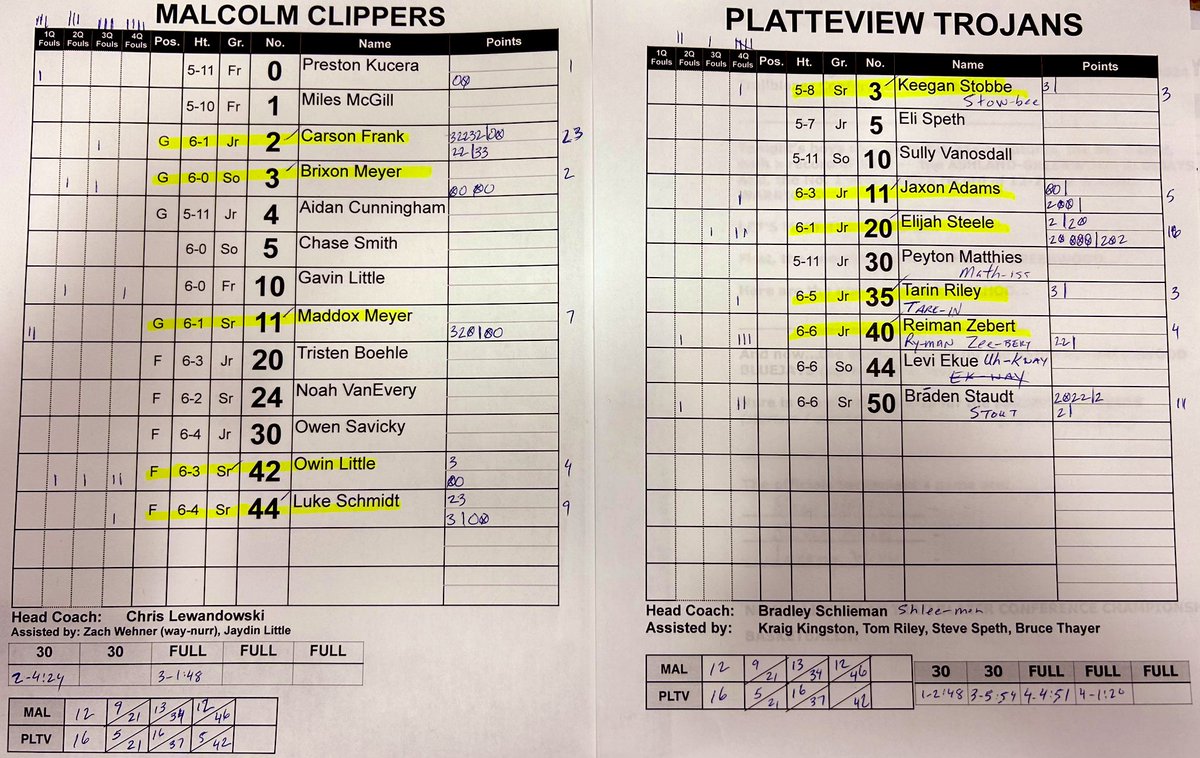 MALCOLM CLIPPERS
1Q Fouls 2Q Fouls 3Q Fouls 4Q Fouls Pos. Ht. Gr. No. Name Points
5-11 Fr 0 Preston Kucera 1
5-10 Fr 1 Miles McGill
G 6-1 Jr 2 Carson Frank 23
22/33
G 6-0 So 3 Brixon Meyer 2
G 5-11 Jr 4 Aidan Cunningham
6-0 So 5 Chase Smith
6-0 Fr 10 Gavin Little
G 6-1 Sr 11 Maddox Meyer 7
F 6-3 Jr 20 Tristen Boehle
F 6-2 Sr 24 Noah VanEvery
F 6-4 Jr 30 Owen Savicky
F 6-3 Sr 42 Owin Little 3 4
F 6-4 Sr 44 Luke Schmidt 23 9
Head Coach: Chris Lewandowski
Assisted by: Zach Wehner (way-nurr), Jaydin Little
30 30 FULL FULL FULL
2-4:24 3-1:48
MAL 12 9/21 13/34 12/46
PLTV 16 5/21 16/37 5/42
PLATTEVIEW TROJANS
1Q Fouls 2Q Fouls 3Q Fouls 4Q Fouls Pos. Ht. Gr. No. Name Points
5-8 Sr 3 Keegan Stobbe 3| 3
Stow-bee
5-7 Jr 5 Eli Speth
5-11 So 10 Sully Vanosdall
6-3 Jr 11 Jaxon Adams 5
6-1 Jr 20 Elijah Steele
5-11 Jr 30 Peyton Matthies
Math-iss
6-5 Jr 35 Tarin Riley 3| 3
TARE-IN
6-6 Jr 40 Reiman Zebert 4
Ry-man Zee-bert 22|
6-6 So 44 Levi Ekue Uh-KWAY
EK-WAY
6-6 Sr 50 Brāden Staudt 11
STOUT 2|
Head Coach: Bradley Schlieman Shlee-man
Assisted by: Kraig Kingston, Tom Riley, Steve Speth, Bruce Thayer
MAL 12 9/21 13/34 12/46
PLTV 16 5/21 16/37 42
30 30 FULL FULL FULL
1-2:48 3-5:54 4-4:51 4-1:20